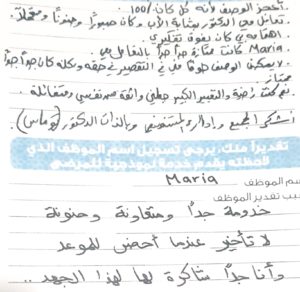 أعجز الوصف لأنه كل كان 100٪.
تعامل مع الدكتور بمثابة الأب وكان صبوراً وحنوناً ومتحملاً.
اهتمامه بي يفوق تفكيري.
Maria كانت ممتازة جداً جداً بالتعامل معي.
لا يمكن الوصف خوفاً مني في التقصير في حقه وبكله كان جداً جداً
ممتاز.
راضية والتغيير الكبير جعلني واثقة من نفسي ومتفائلة.
أشكر الجميع وإدارة المستشفى وبالذات الدكتور (توماس).
تقديراً منك، يرجى تسجيل اسم الموظف الذي
لاحظته يقدم خدمة نموذجية للمرضى
اسم الموظف Maria
سبب تقدير الموظف
خدومة جداً ومتعاونة وحنونة
لا تتأخر عندما أحضر للموعد
وأنا جداً شاكرة لها لهذا الجهد ..